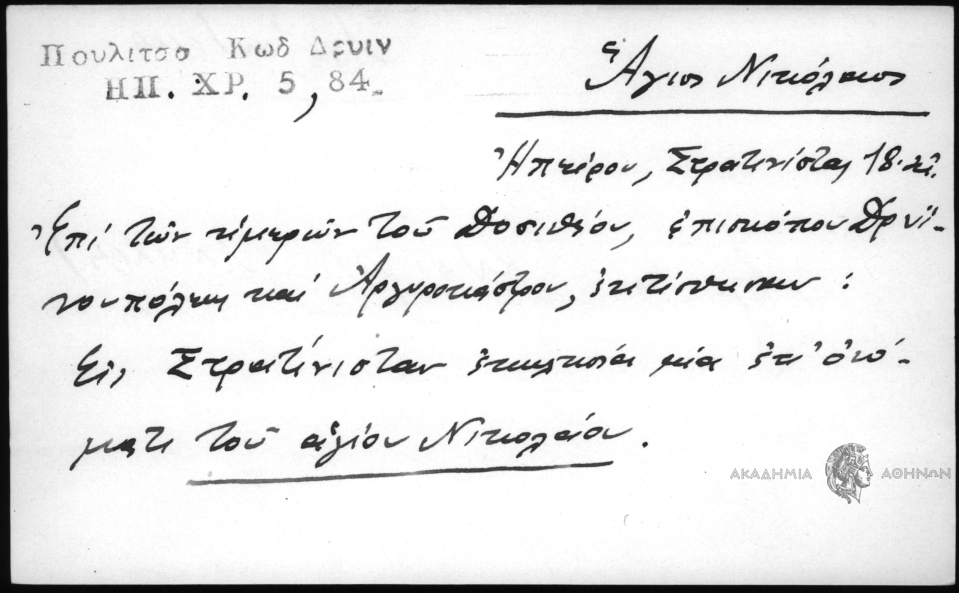 Πουλιτσα Κωδ Δρυιν
ΗΠ. ΧΡ. 5, 84
Ἅγιος Νικόλαος
Ἠπείρου, Στρατινίστας 18. αἰ.
Ἐπί τῶν ἡμερῶν τοῦ Δοσιθέου, ἐπισκόπου Δρυϊ-
νουπόλεως καί Ἀργυροκάστρου, ἐκτίσθησαν :
Εἰς Στρατίνισταν ἐκκλησία μία ἐπ' ὀνό-
ματι τοῦ ἁγίου Νικολάου.
ΑΚΑΔΗΜΙΑ ΑΘΗΝΩΝ